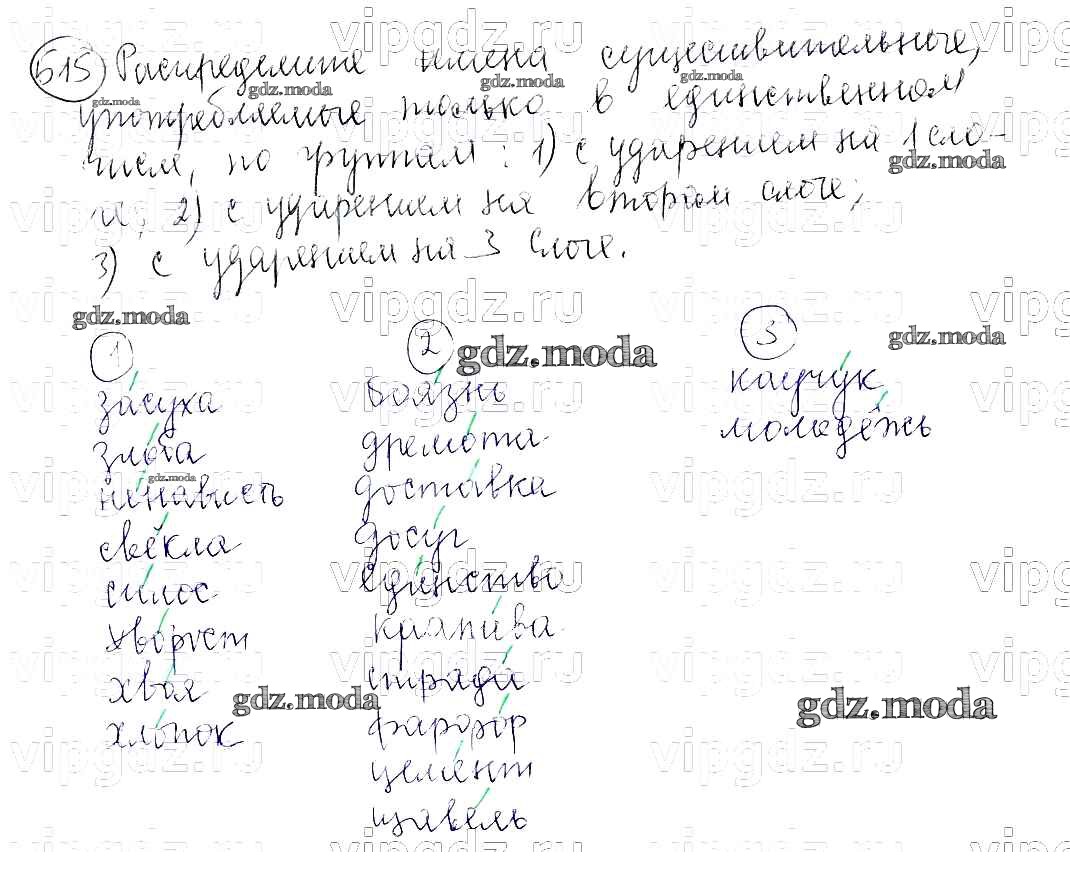 515 Распределите имена существительные,
употребляемые только в единственном
числе, по группам: 1) с ударением на 1 сло-
ге; 2) с ударением на втором слоге;
3) с ударением на 3 слоге.
1 2 3
засуха боязнь каучук
злоба дремота молодёжь
ненависть доставка
свёкла досуг
силос единство
хворост крапива
хвоя страда
хлопок фарфор
цемент
щавель
gdz.moda
vipgdz.ru